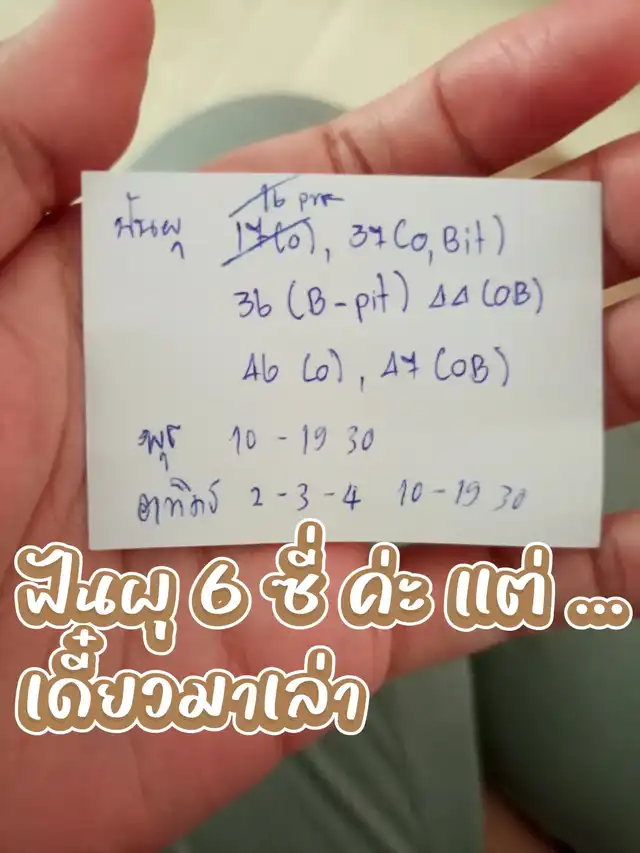 16 prr
ฟันผุ 17(O), 37(O, Bit)
36 (B-pit) 44 (OB)
46 (O), 47 (OB)
พุธ 10 - 19 30
อาทิตย์ 2 - 3 - 4 10 - 19 30
ฟันผุ 6 ซี่ ค่ะ แต่ ...
เดี๋ยวมาเล่า